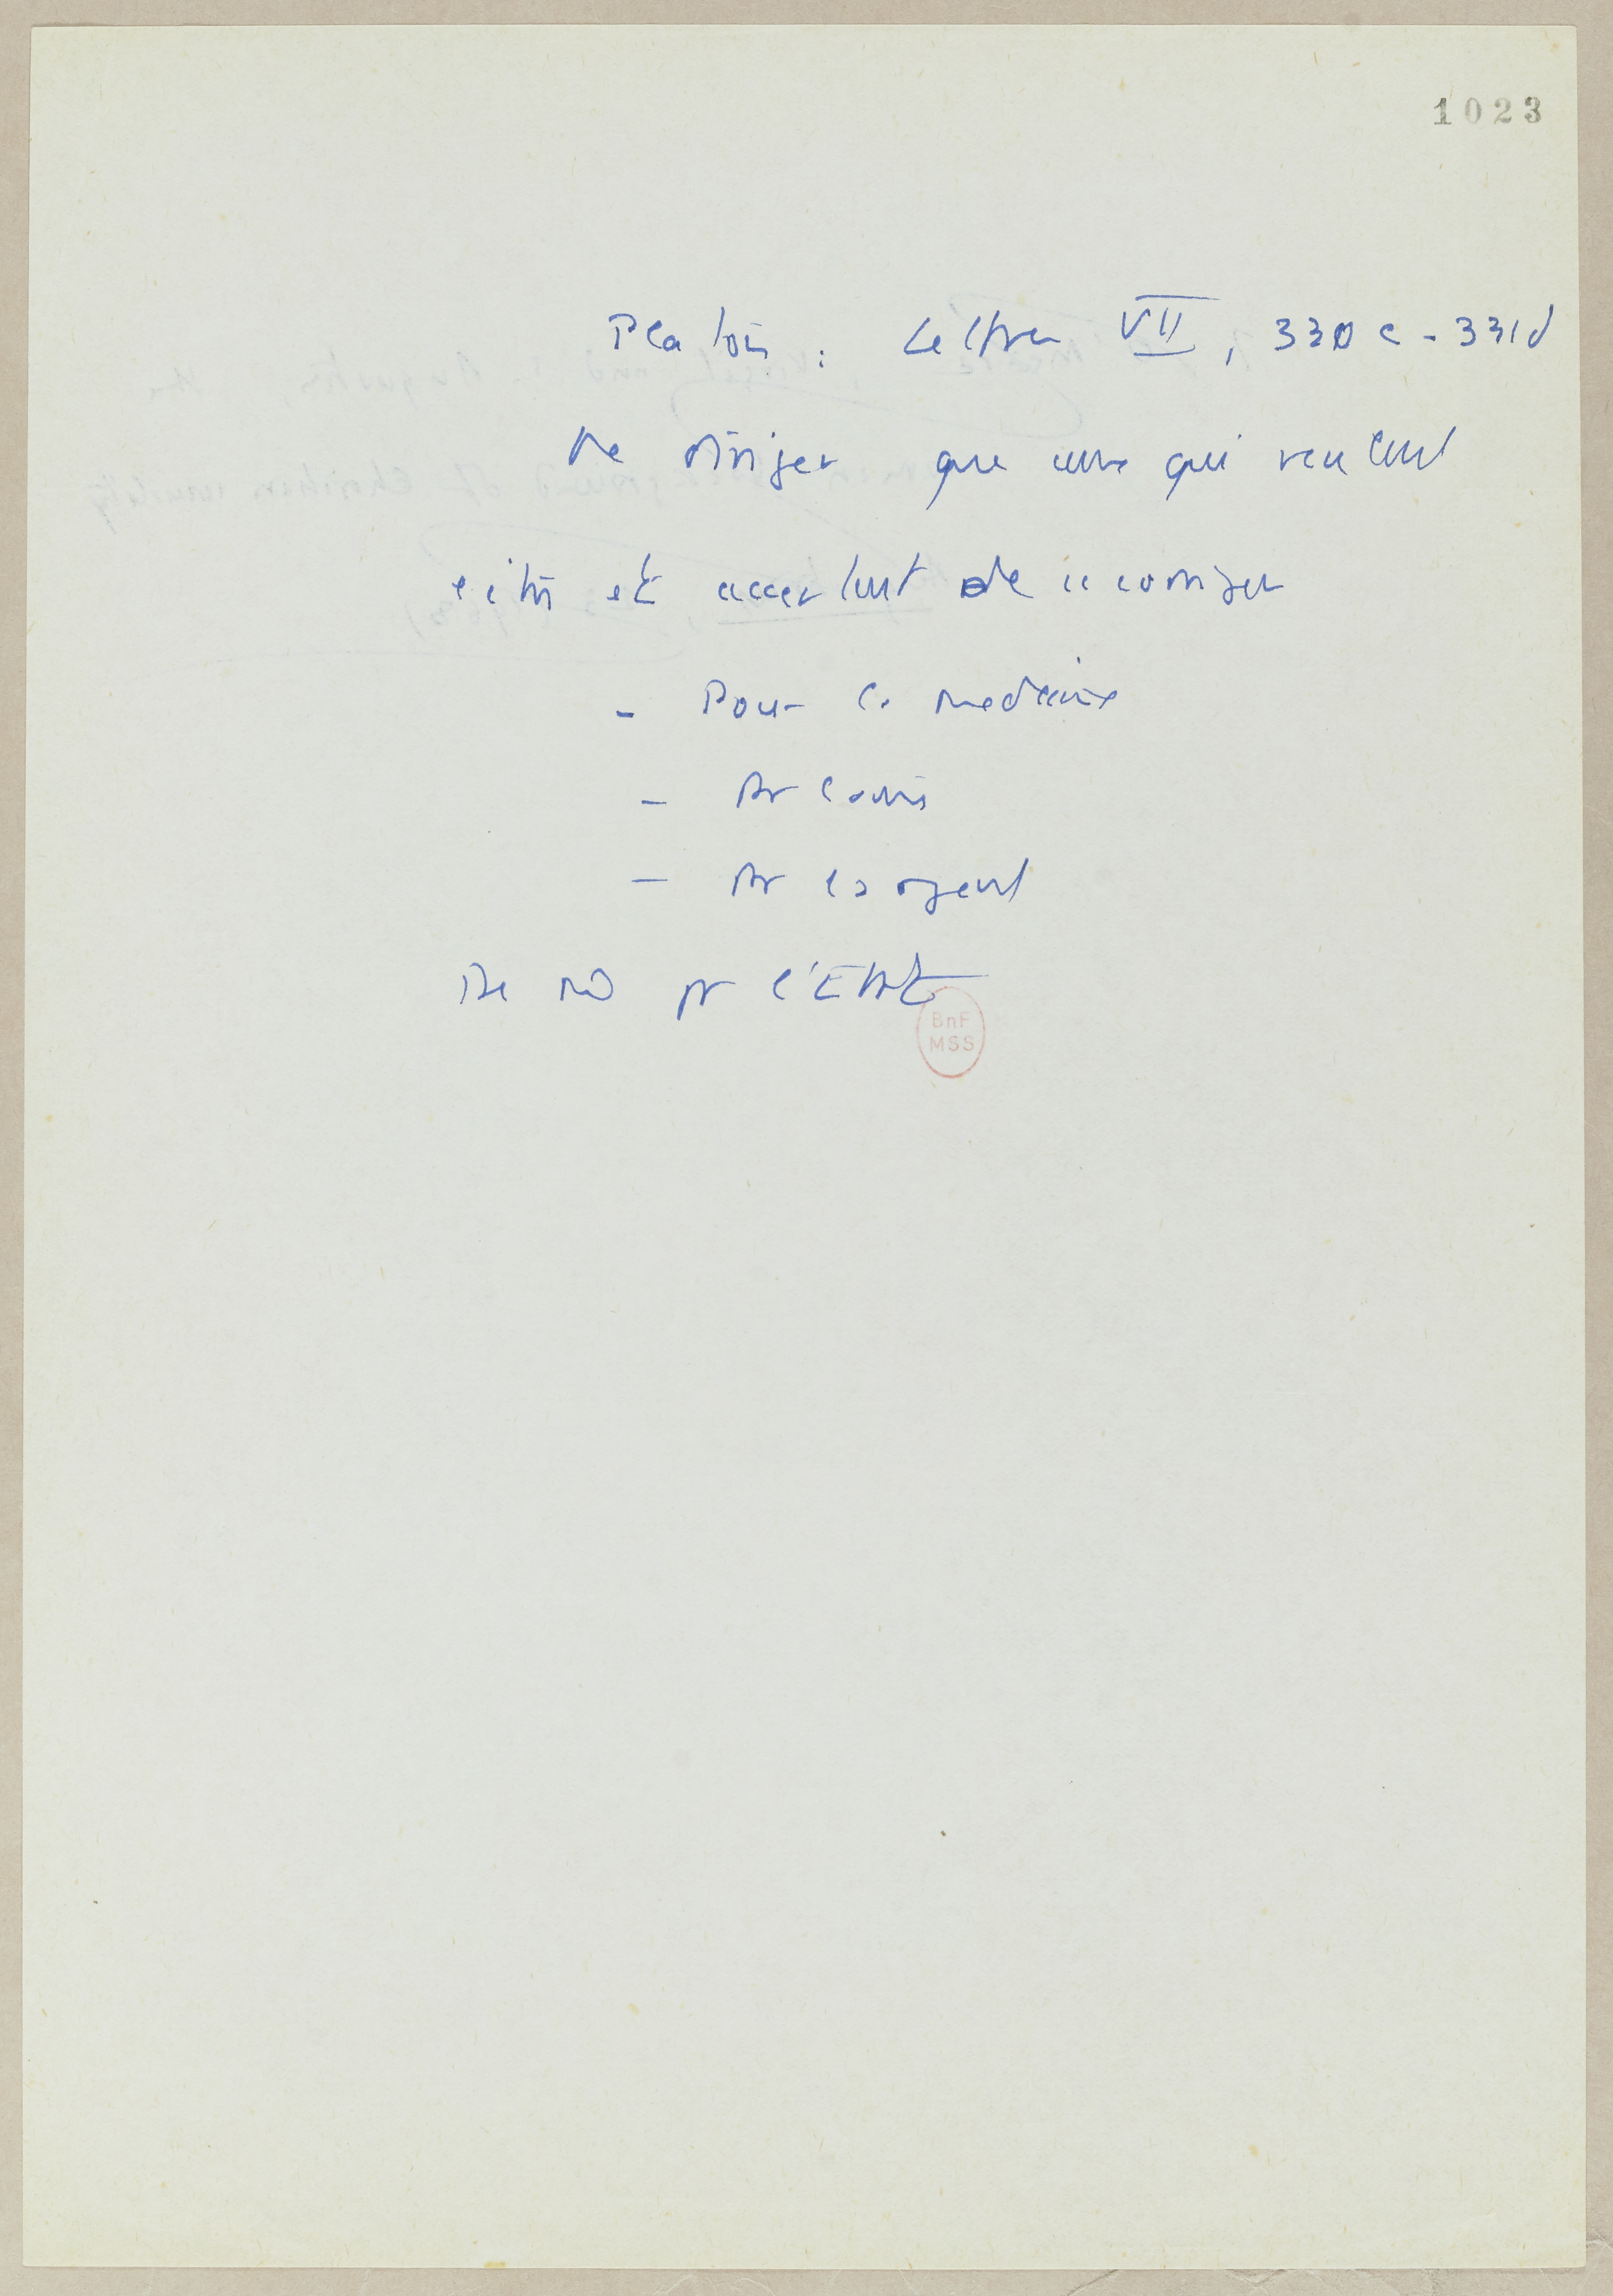 1023
Platon : Lettre VII, 330 c - 331 d
Ne diriger que ceux qui veulent
et acceptent de se corriger
- Pour la medecine
- Pr
- Pr
De pr l'Etat
BnF
MSS